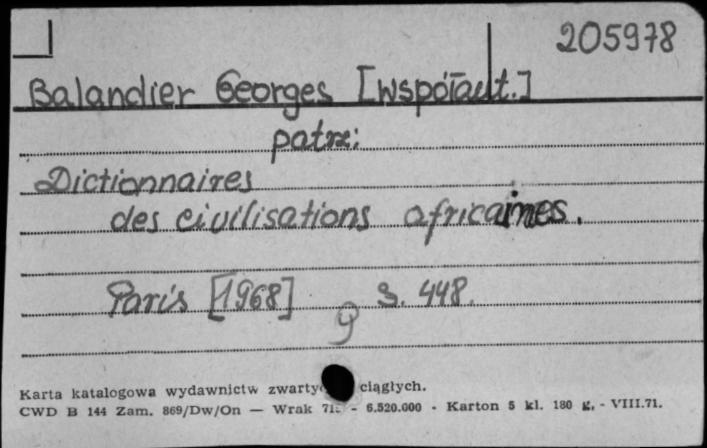 205978
Balandier Georges [współaut.]
patrz:
Dictionnaires
des civilisations africaines.
Paris [1968] S. 448.
9
Karta katalogowa wydawnictw ciągłych.
CWD B 144 Zam. 869/Dw/On — Wrak - 6.520.000 - Karton 5 kl. 180 g, - VIII.71.